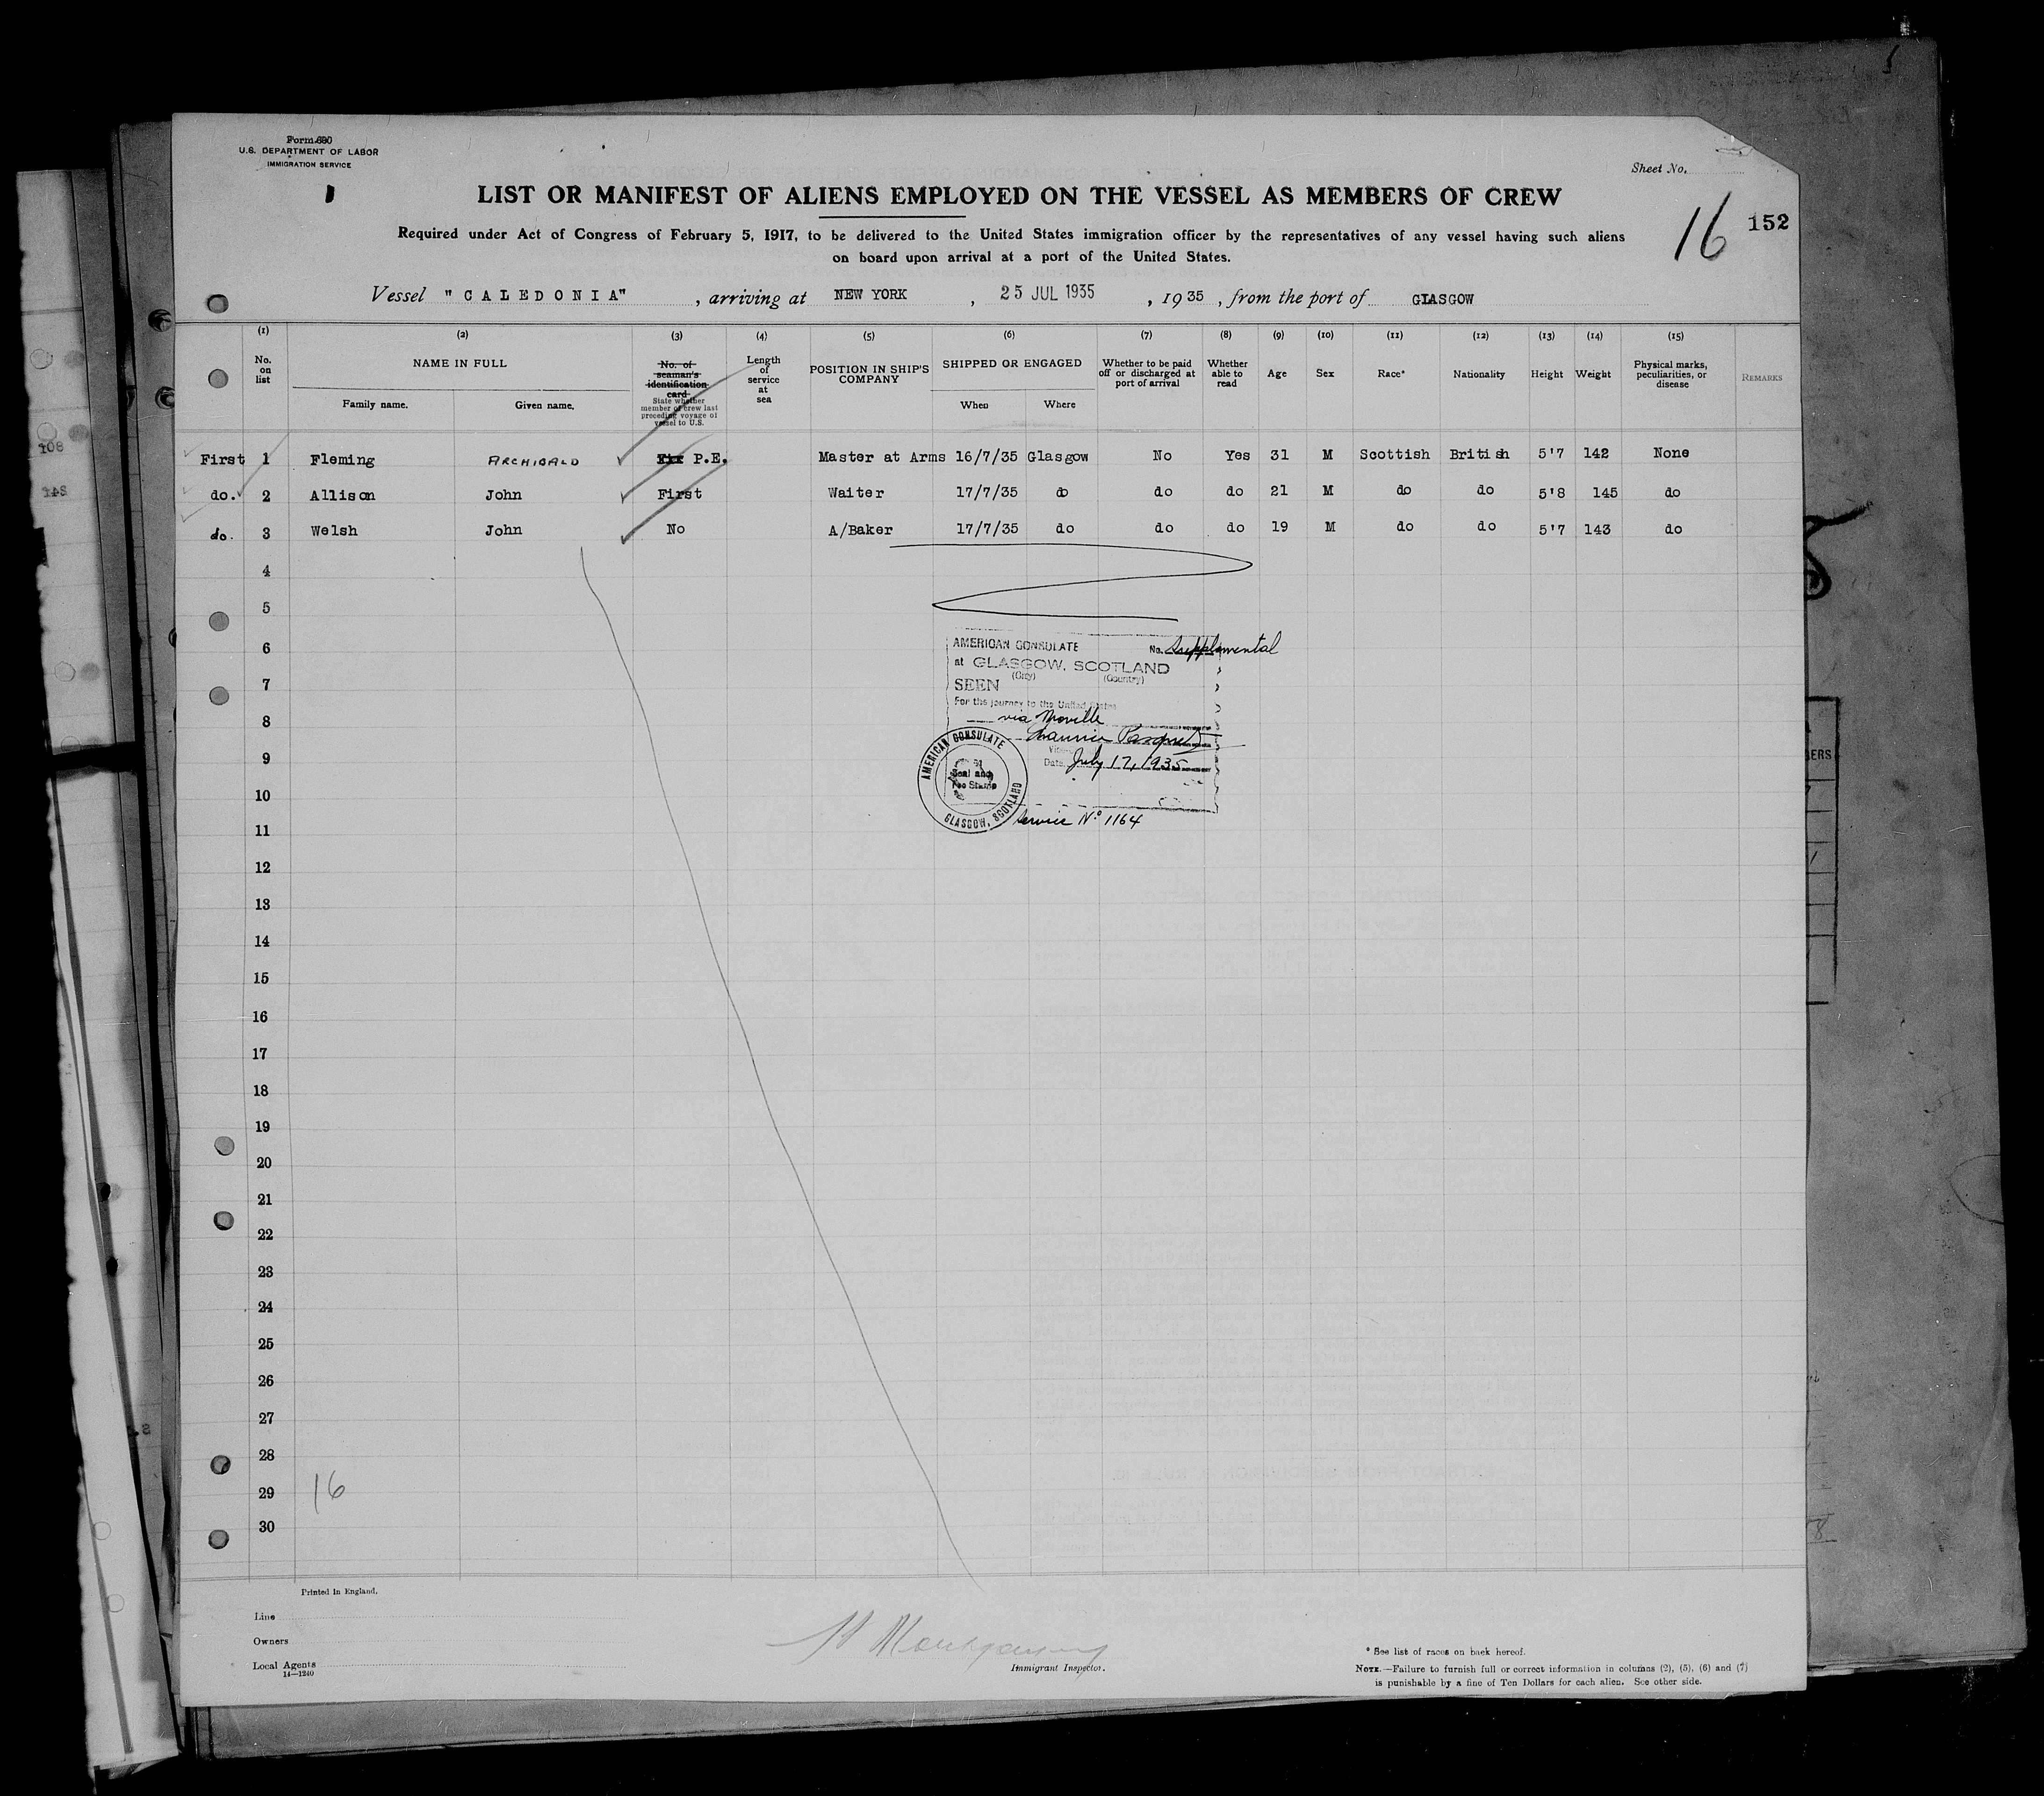 Form 680
U.S. DEPARTMENT OF LABOR
IMMIGRATION SERVICE
Sheet No.
LIST OR MANIFEST OF ALIENS EMPLOYED ON THE VESSEL AS MEMBERS OF CREW
16 152
Required under Act of Congress of February 5, 1917, to be delivered to the United States immigration officer by the representatives of any vessel having such aliens
on board upon arrival at a port of the United States.
Vessel "CALEDONIA", arriving at NEW YORK, 25 JUL 1935, 1935, from the port of GLASGOW
(1) (2) (3) (4) (5) (6) (7) (8) (9) (10) (11) (12) (13) (14) (15)
No. on list
NAME IN FULL
Family name. Given name.
No. of seaman's identification card
State whether member of crew last preceding voyage of vessel to U.S.
Length of service at sea
POSITION IN SHIP'S COMPANY
SHIPPED OR ENGAGED
When Where
Whether to be paid off or discharged at port of arrival
Whether able to read
Age
Sex
Race*
Nationality
Height
Weight
Physical marks, peculiarities, or disease
REMARKS
First 1 Fleming ARCHIBALD Fir P.E. Master at Arms 16/7/35 Glasgow No Yes 31 M Scottish British 5'7 142 None
do. 2 Allison John First Waiter 17/7/35 do do do 21 M do do 5'8 145 do
do. 3 Welsh John No A/Baker 17/7/35 do do do 19 M do do 5'7 143 do
4
5
6
7
8
9
10
11
12
13
14
15
16
17
18
19
20
21
22
23
24
25
26
27
28
29
30
AMERICAN CONSULATE No. Supplemental
at GLASGOW, SCOTLAND
(City) (Country)
SEEN
For the journey to the United States
via Moville
Date July 17, 1935
AMERICAN CONSULATE
Seal and
Fee Stamp
GLASGOW, SCOTLAND
Service No 1164
16
Printed in England.
Line
Owners
Local Agents
14—1240
H Montgomery
Immigrant Inspector.
* See list of races on back hereof.
NOTE.—Failure to furnish full or correct information in columns (2), (5), (6) and (7)
is punishable by a fine of Ten Dollars for each alien. See other side.
108